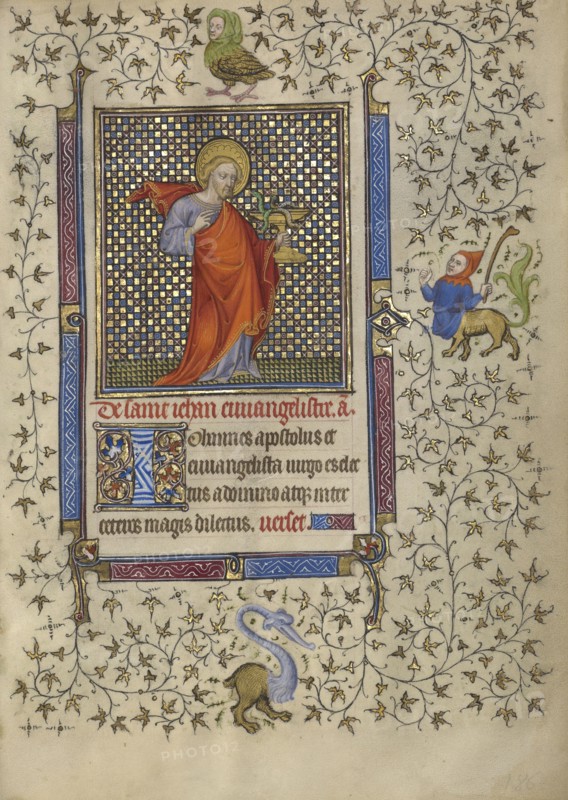 De saint iehan euuangelistre. a.
Iohannes apostolus et
euuangelista uirgo es elec
tus a domino atqz inter
ceteros magis dilectus. Verset.
186
PHOTO12